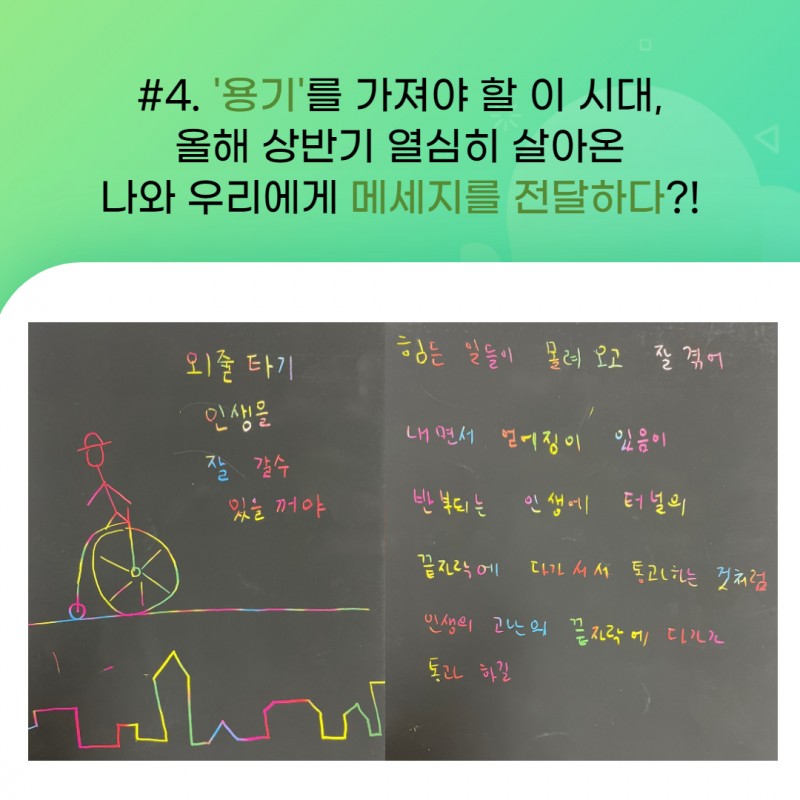 #4. '용기'를 가져야 할 이 시대,
올해 상반기 열심히 살아온
나와 우리에게 메세지를 전달하다?!
외줄타기
인생을
잘 갈수
있을 꺼야
힘든 일들이 몰려 오고 잘 겪어
내면서 얻어짐이 있음이
반복되는 인생에 터널의
끝자락에 다가 서서 통과하는 것처럼
인생의 고난의 끝자락에 다가가
통과 하길